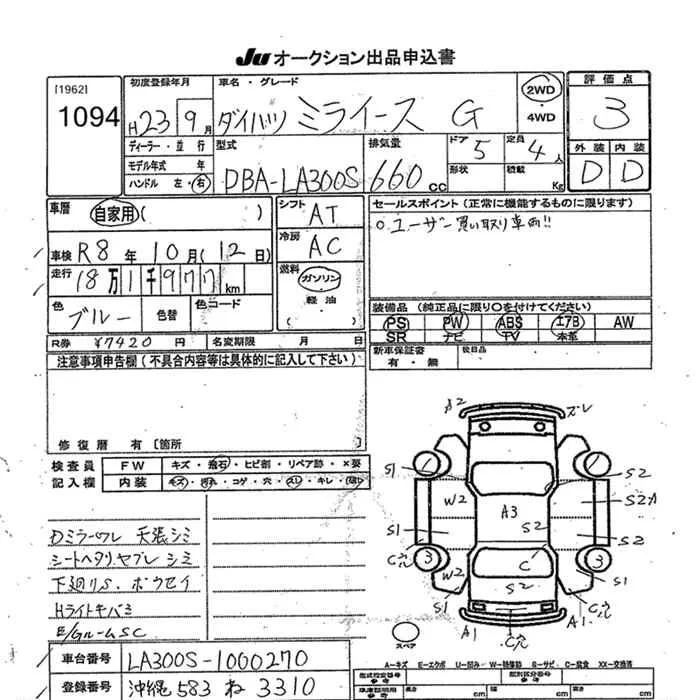 Ju オークション出品申込書
[1962]
1094
初度登録年月
H23 9月
ディーラー・並行
モデル年式 年
ハンドル 左・右
車名・グレード
ダイハツ ミライース G
2WD
・
4WD
評価点
3
外装 内装
D D
型式
DBA-LA300S
排気量
660cc
ドア
5
形状
定員
4人
積載
Kg
車歴 自家用( )
車検 R8年10月(12日)
走行 18万1千977km
色 ブルー 色替 色コード
シフト AT
冷房 AC
燃料 ガソリン
・
軽油
セールスポイント(正常に機能するものに限ります)
○ユーザー買い取り車両!!
装備品(純正品に限り○を付けてください)
PS PW ABS エアB AW
SR ナビ TV 本革
R券 ¥7420円 名変期限 月 日
新車保証書 有・無
後日品
注意事項申告欄(不具合内容等は具体的に記入して下さい)
修復歴 有[箇所 ]
検査員記入欄
FW キズ・飛石・ヒビ割・リペア跡・×要
内装 キズ・汚れ・コゲ・穴・スレ・キレ・
Dミラーワレ 天張シミ
シートヘタリ、ヤブレ シミ
下廻りS. ボウセイ
Hライトキバミ
E/GルームSC
車台番号 LA300S-1000270
登録番号 沖縄 583 ね 3310
A2 ズレ
S1 1 1 S2
W2 A3 S2 S2A
S1 S2
C穴 3 C 3
W2 S2 S1
A1 C穴 A1 C穴
スペア
A-キズ E-エクボ U-凹み W-補修跡 S-サビ C-腐食 XX-交換済
cm cm cm